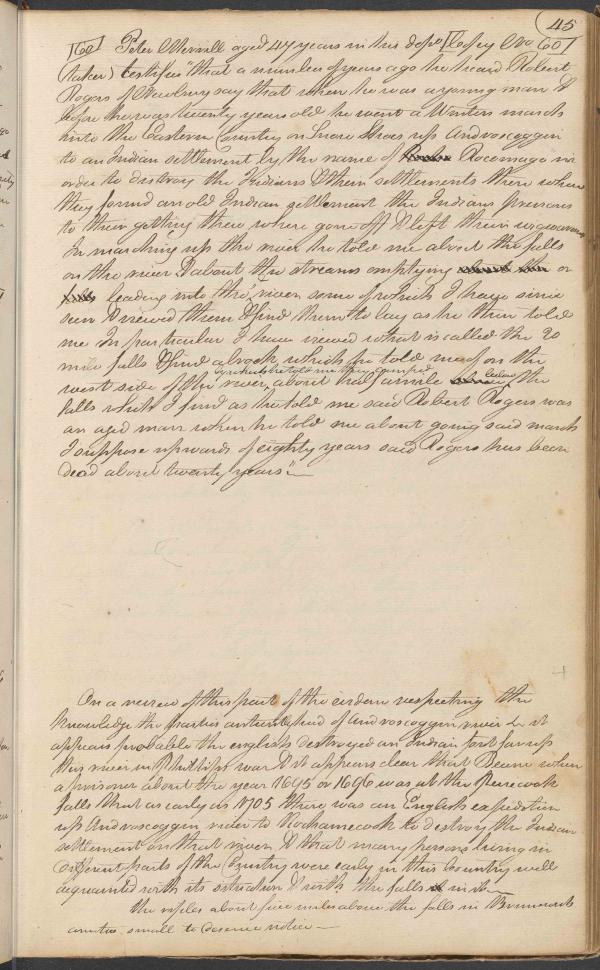 45
60 Peter Merrill aged 47 years in his depo [Copy No 60]
(taken) testifies "that a number of years ago he heard Robert
Rogers of Newbury say that when he was a young man &
before he was twenty years old he went a Winters march
into the Eastern Country on Snow Shoes up Androscoggin
to an Indian settlement by the name of Rocomago in
order to distroy the Indians & them settlements there where
they found an old Indian settlement the Indians previous
to their getting there where gone off & left their wigwams
In marching up the river he told me about the falls
on the river & about the streams emptying or
leading into the river some of which I have since
seen & viewed them & find them to lay as he then told
me In particular I have viewed what is called the 20
mile falls & find a brook which he told me of on the
by which he told me they camped
west side of the river about half a mile below the
falls which I find as he told me said Robert Rogers was
an aged man when he told me about going said march
I suppose upwards of eighty years said Rogers has been
dead about twenty years"
On a review of this part of the evidence respecting the
knowledge the parties antiently had of androscoggin river & it
appears probable the english destroyed an Indian fort far up
this river in Phillips war & it appears clear that when
a prisoner about the year 1695 or 1696 was at the
falls that as early as 1705 there was an English expedition
up Androscoggin river to Rockamecook to destroy the Indian
settlement on that river & that many persons living in
different parts of the Country were early in this Country well
acquainted with its situation & with the falls in it
the about five miles above the falls in Brunswick
small to deserve notice